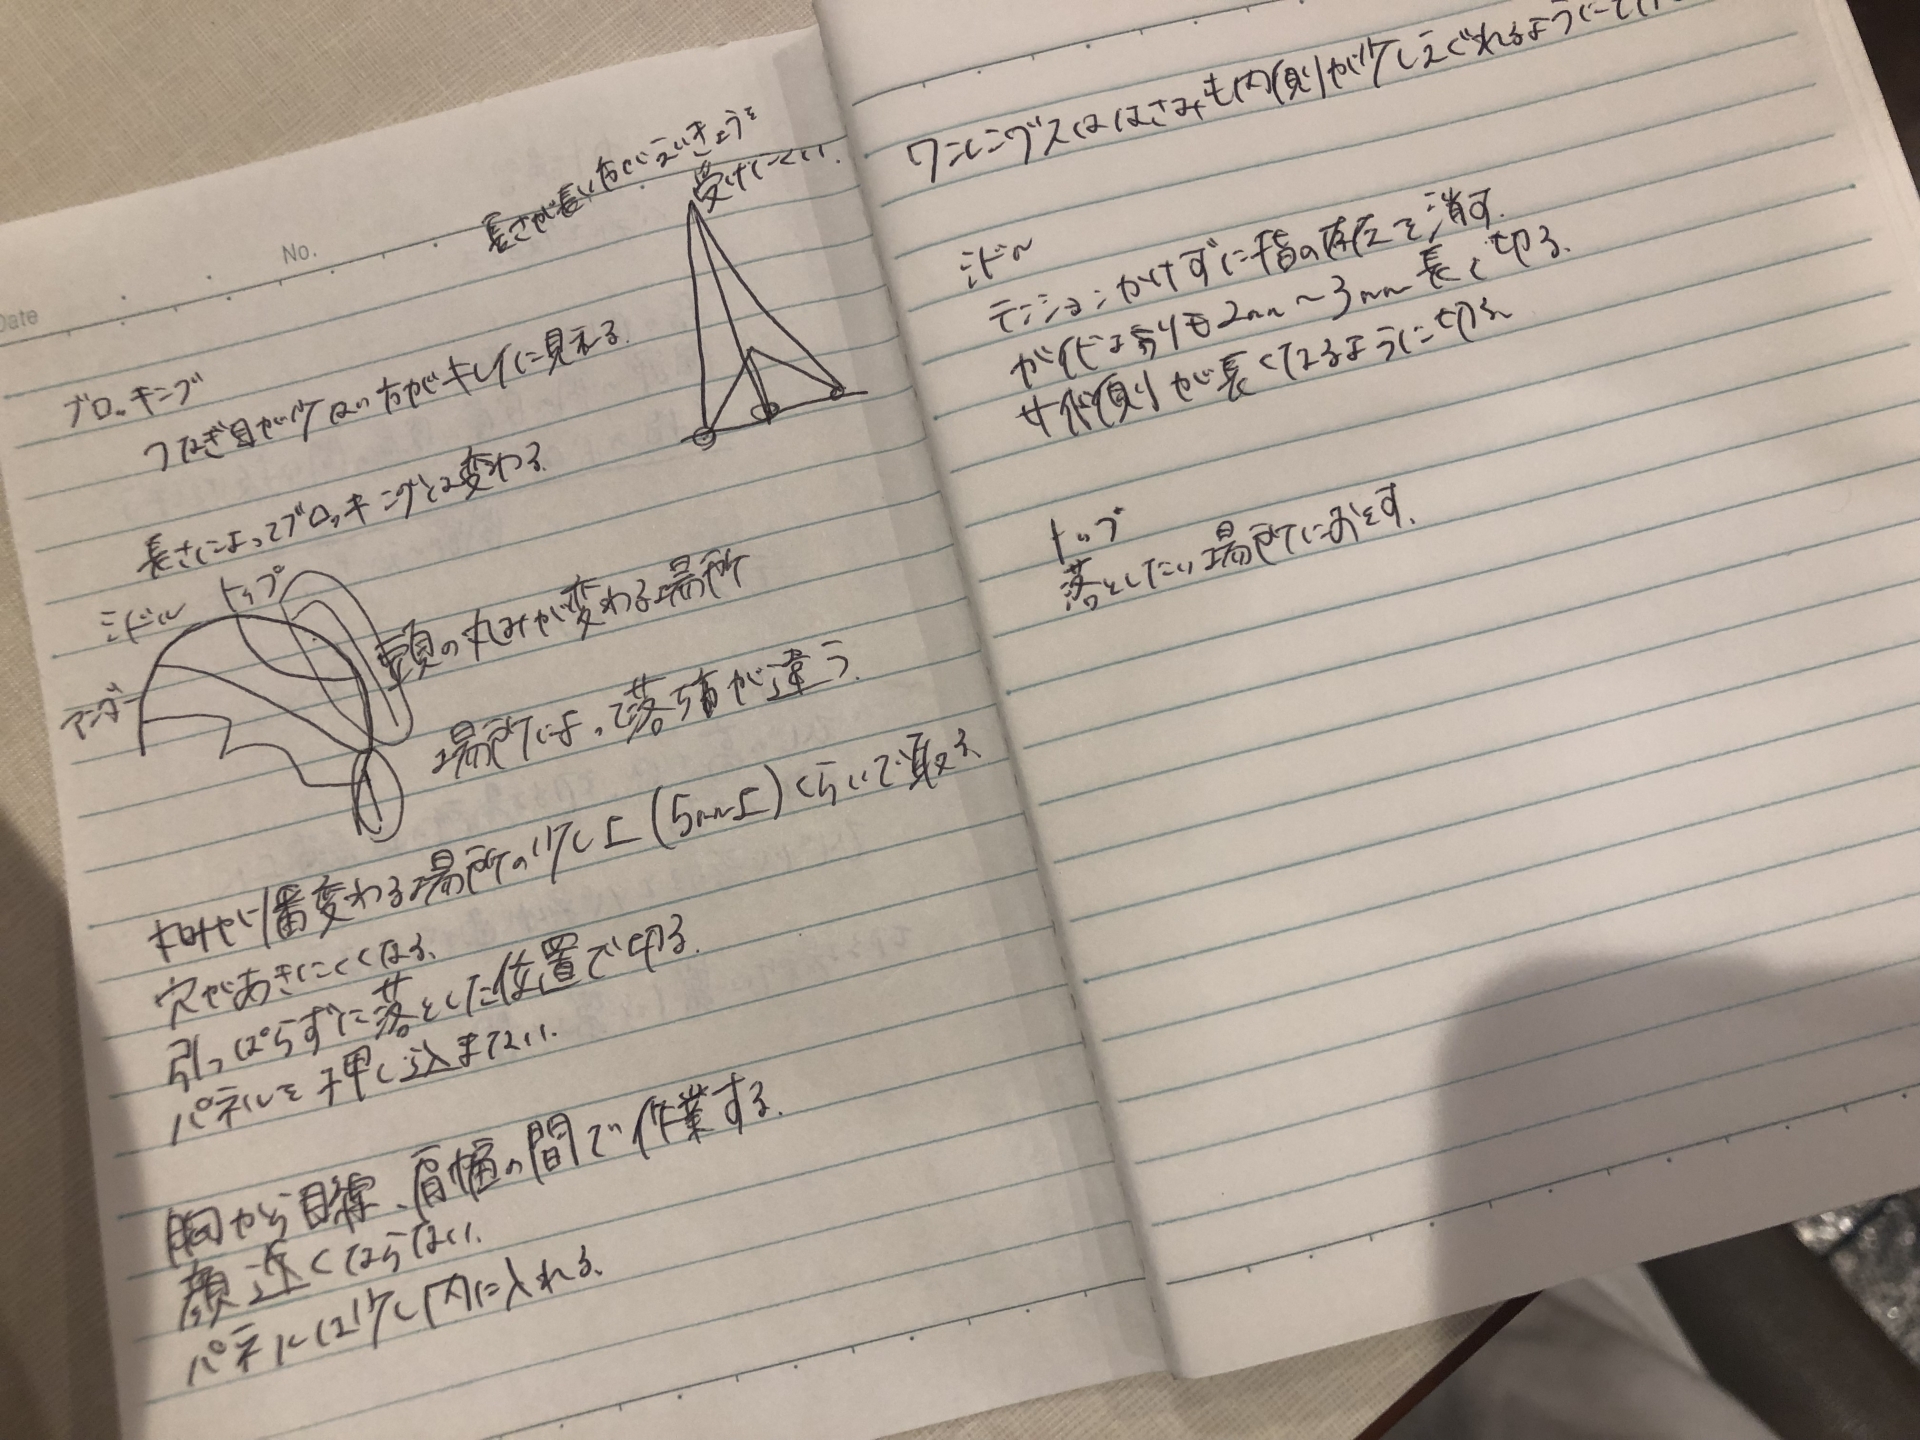 No.
Date
長さが長い方がえいきょうを
受けにくい.
ブロッキング
つなぎ目が少ない方がキレイに見える.
長さによってブロッキングとは変わる.
ミドル
トップ
アンダー
頭の丸みが変わる場所
場所によって落ち方が違う.
丸みが1番変わる場所の少し上(5mm上)くらいで取る
穴があきにくくなる.
引っぱらずに落とした位置で切る.
パネルを押し込まない.
胸から目線、肩幅の間で作業する.
顔近くならない.
パネルは少し内に入れる.
ワンレングスははさみも内側が少しえぐれるように
ミドル
テンションかけずに指の存在を消す.
ガイドよりも2mm〜3mm長く切る.
サイド側が長くなるように切る.
トップ
落としたい場所におとす.